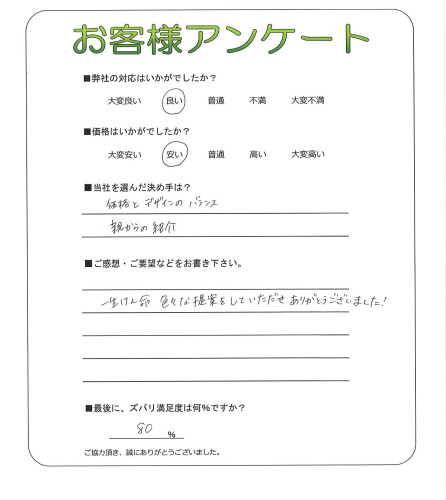 お客様アンケート
■弊社の対応はいかがでしたか？
大変良い 良い 普通 不満 大変不満
■価格はいかがでしたか？
大変安い 安い 普通 高い 大変高い
■当社を選んだ決め手は？
価格と デザインの バランス
親からの紹介
■ご感想・ご要望などをお書き下さい。
一生けん命 色々な提案をしていただき ありがとうございました!
■最後に、ズバリ満足度は何％ですか？
80 ％
ご協力頂き、誠にありがとうございました。